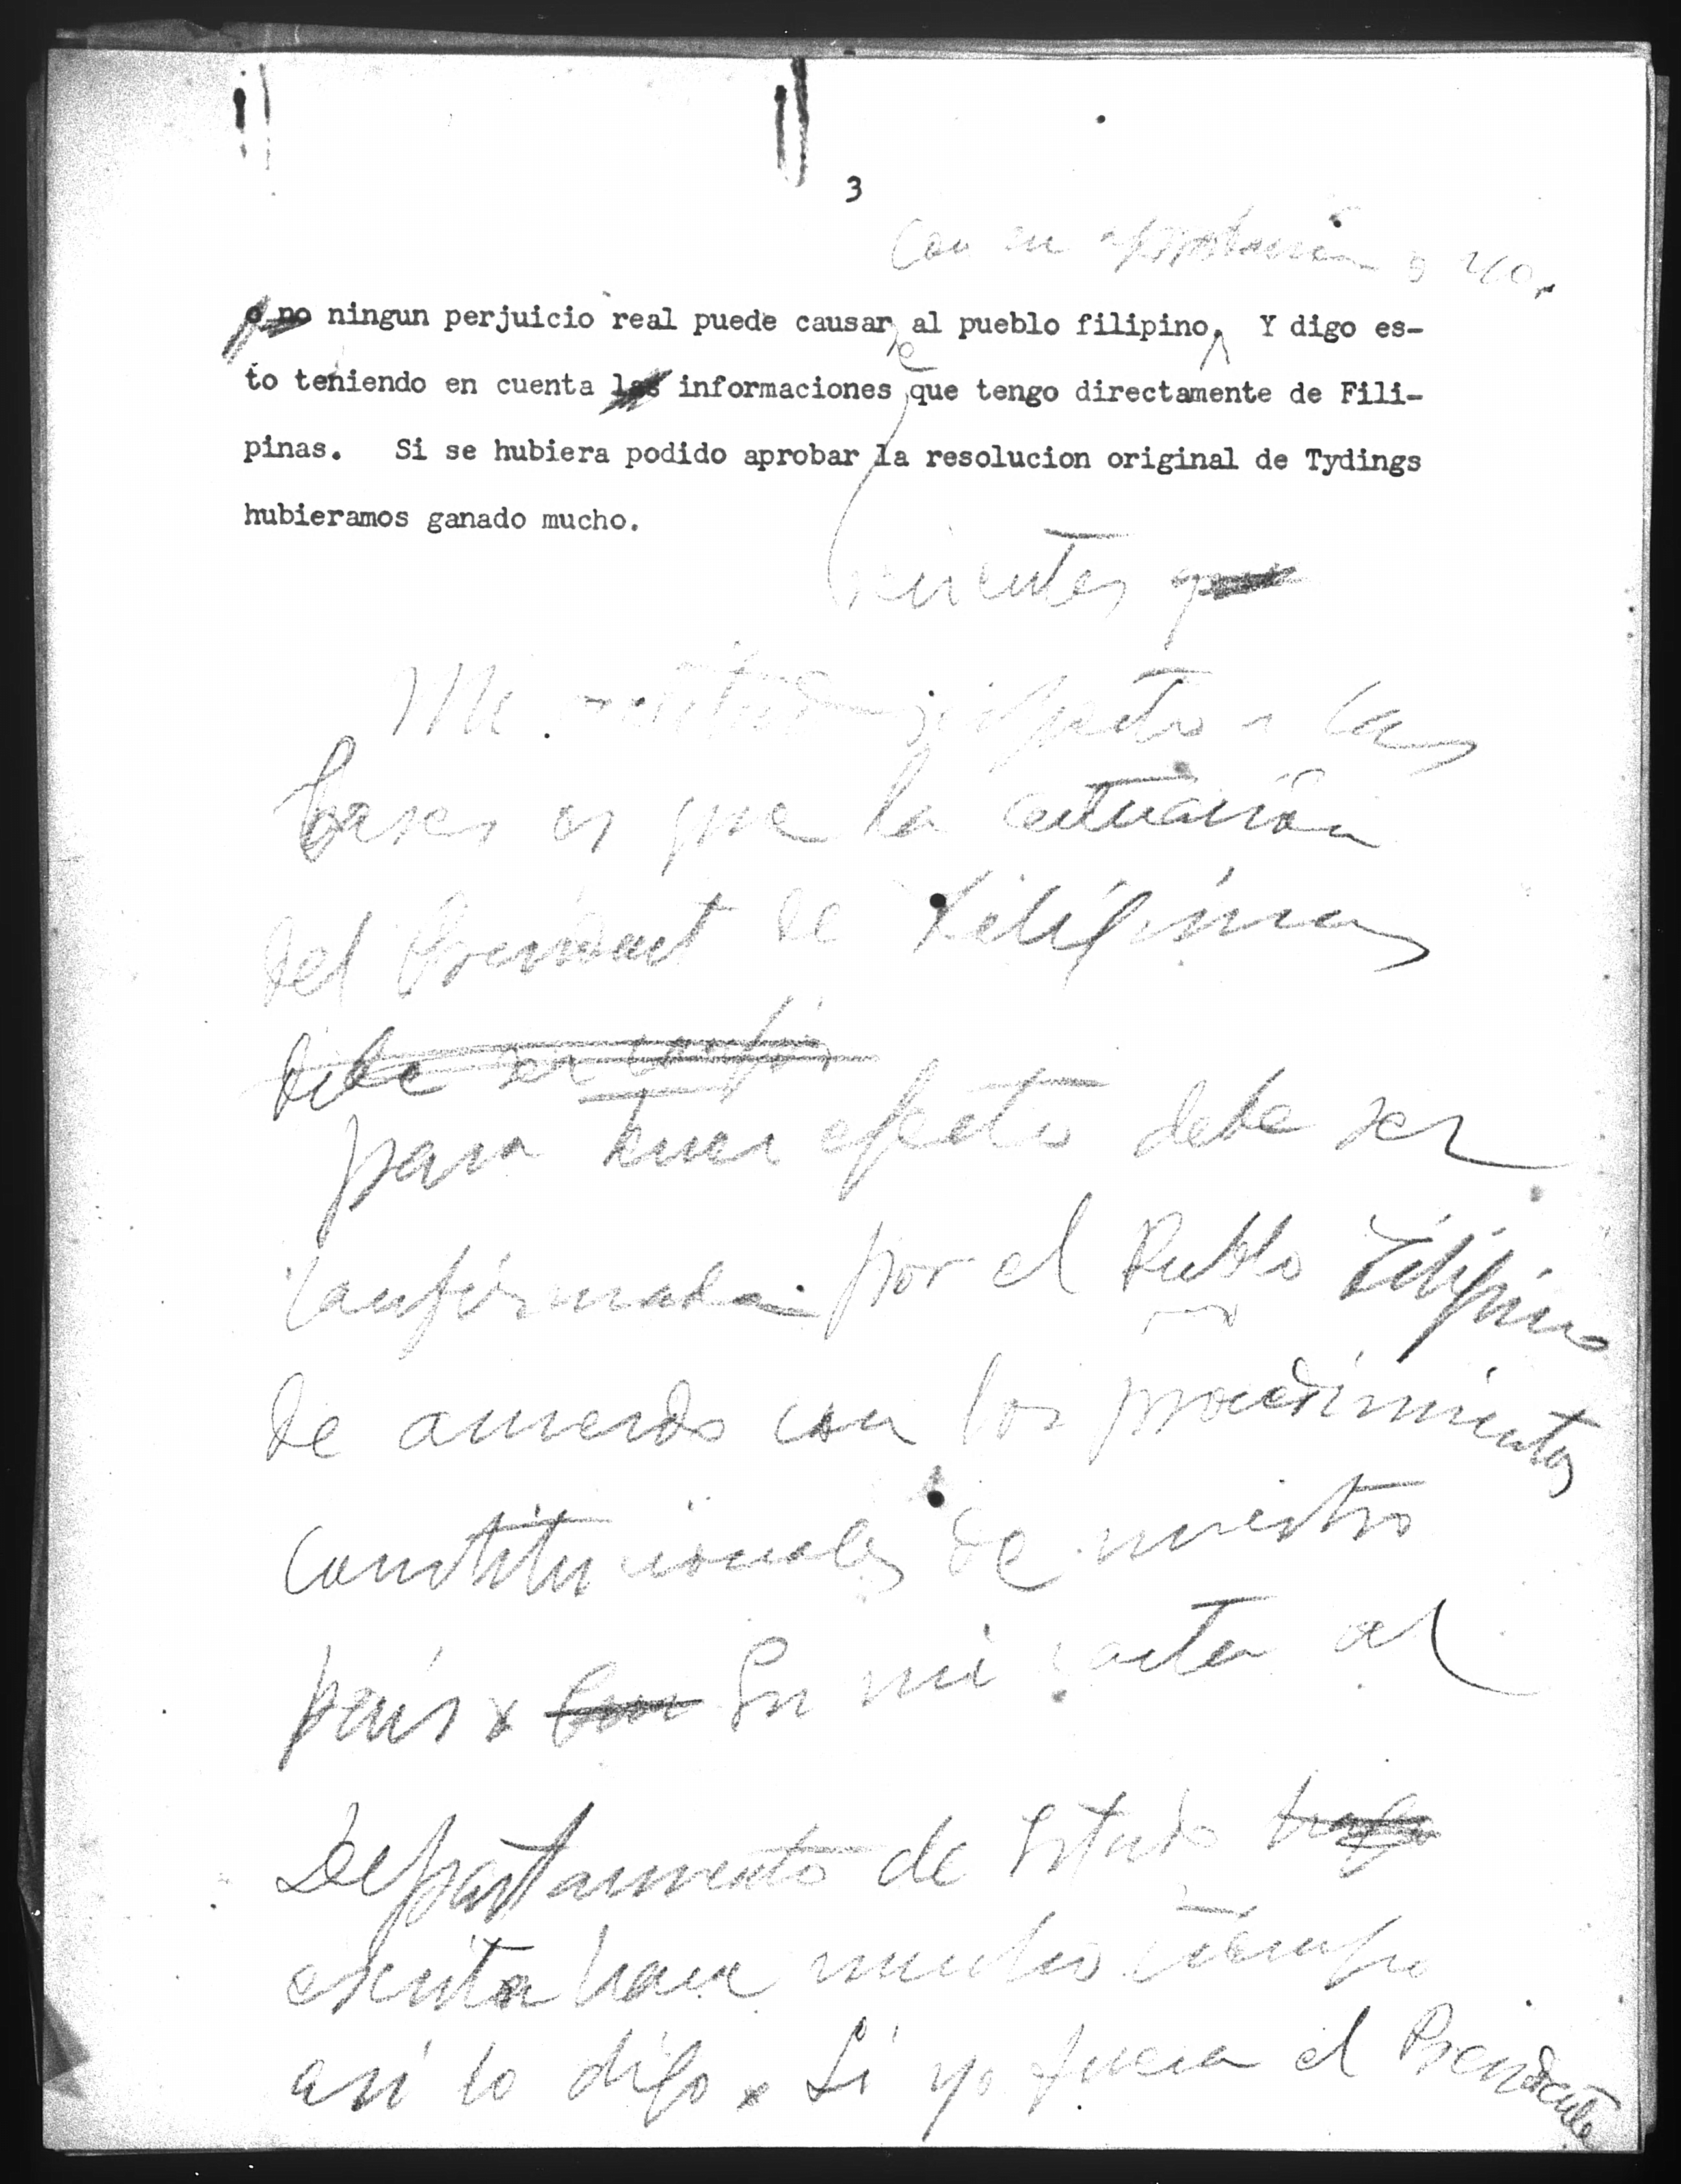 3
con su aprobacion o no.
o no ningun perjuicio real puede causarle al pueblo filipino, Y digo es-
to teniendo en cuenta las informaciones que tengo directamente de Fili-
pinas. Si se hubiera podido aprobar la resolucion original de Tydings
hubieramos ganado mucho.
recientes que
Mi actitud respecto a las
bases es que la actuación
del President de Filipinas
debe ser
para tener efecto debe ser
confirmada por el Pueblo Filipino
de acuerdo con los procedimientos
constitucionales de nuestro
país x En mi carta al
Departamento de Estado
escrita hace mucho tiempo
así lo digo x Si yo fuera el Presidente